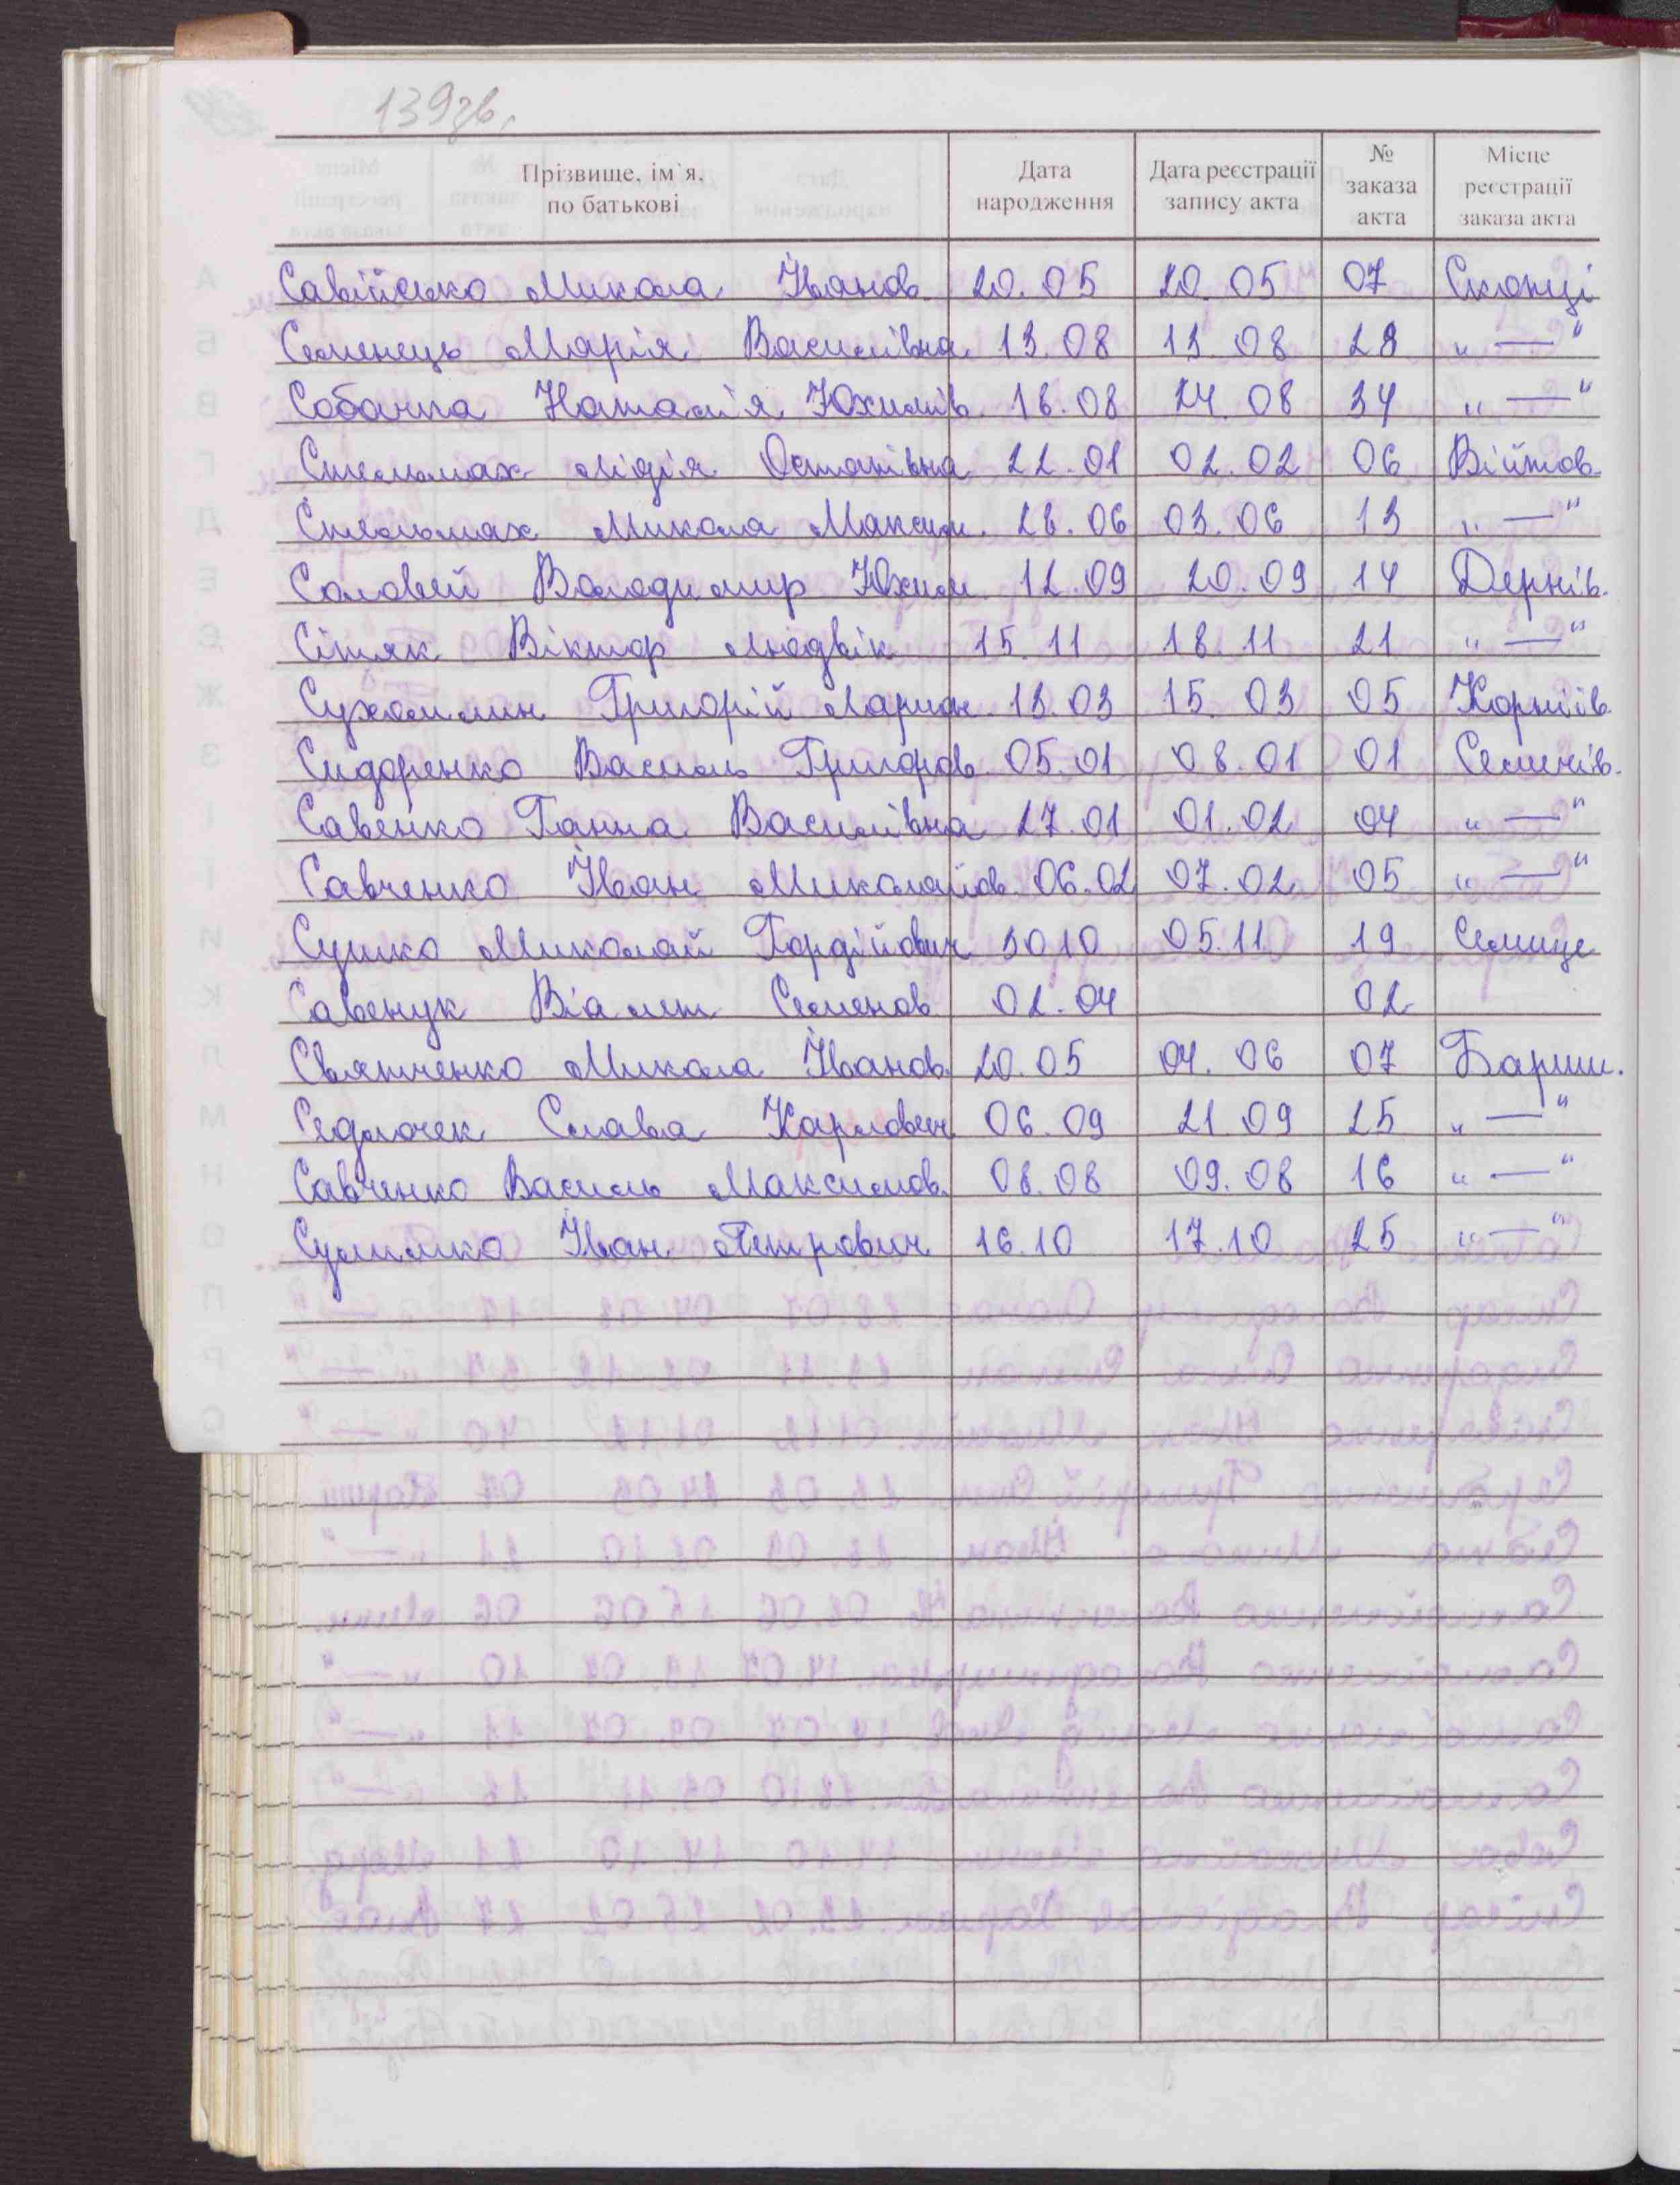 139зв.
Прізвище, ім`я, по батькові | Дата народження | Дата реєстрації запису акта | № заказа акта | Місце реєстрації заказа акта
Савійсько Микола Іванов. 20.05 20.05 07 Сколиці
Семенець Марія Василівна 13.08 13.08 28 „ — "
Собачка Наталія Юхимів. 18.08 24.08 34 „ — "
Стельмах Лідія Остапівна 22.01 02.02 06 Війтов.
Стельмах Микола Максим. 28.06 03.06 13 „ — "
Соловей Володимир Юхим. 12.09 20.09 14 Дернів.
Сітяк Віктор Людвік 15.11 18.11 21 „ — "
Сухомлин Григорій Ларион. 13.03 15.03 05 Корніїв.
Сидоренко Василь Григоров. 05.01 08.01 01 Семенів.
Савенко Ганна Василівна 27.01 01.02 04 „ — "
Савченко Іван Миколайов. 06.02 07.02 05 „ — "
Сушко Миколай Гордійович 30 10 05.11 19 Селище
Савенук Віалет Семенов. 02.04 02
Святченко Микола Іванов. 20.05 04.06 07 Бариш.
Седлочек Слава Карлович 06.09 21.09 25 „ — "
Савченко Василь Максимов. 08.08 09.08 16 „ — "
Сулимко Іван Петрович 16.10 17.10 25 „ — "